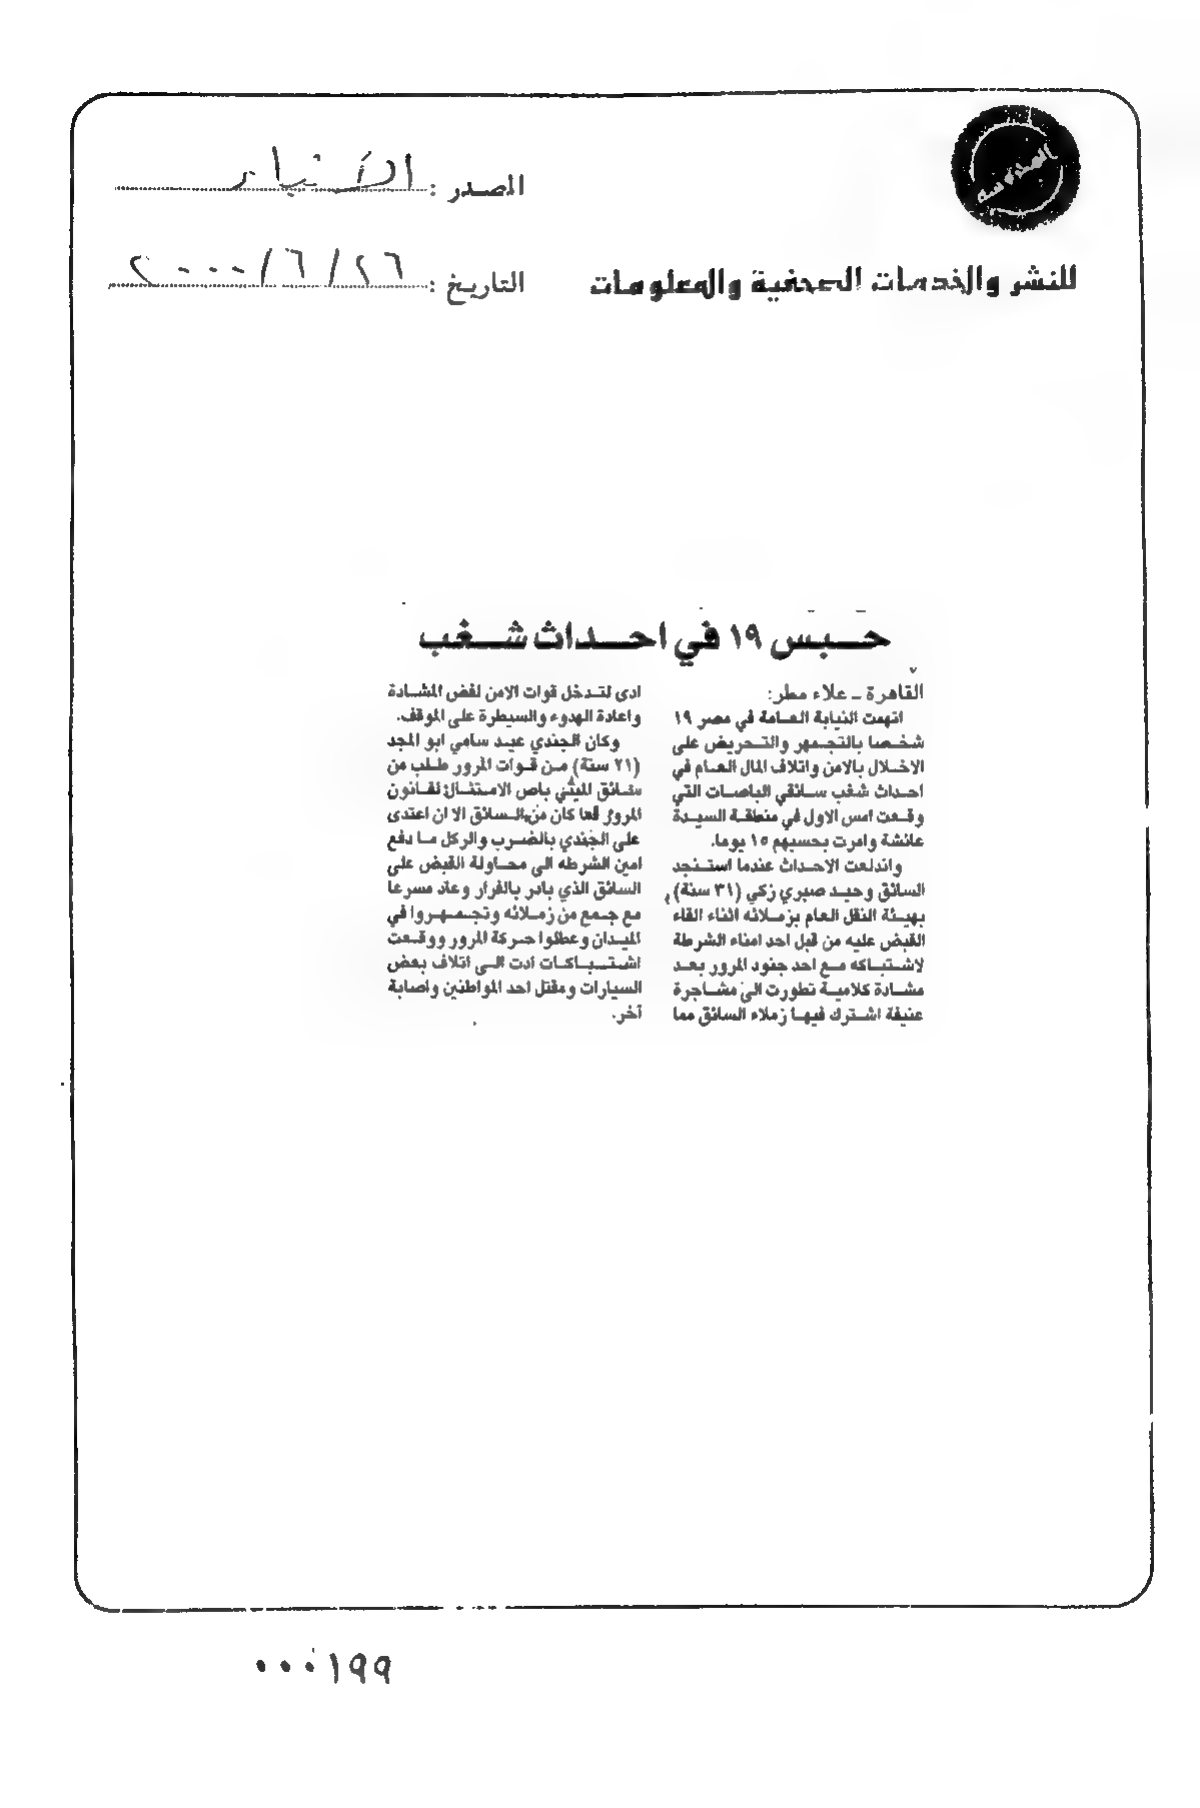 المصدر : الأنباء
التاريخ : ٢٦/٦/٢٠٠٠
للنشر والخدمات الصحفية والمعلومات
حبس ١٩ في احداث شغب
القاهرة ـ علاء مطر:
اتهمت النيابة العامة في مصر ١٩
شخصا بالتجمهر والتحريض على
الاخلال بالامن واتلاف المال العام في
احداث شغب سائقي الباصات التي
وقعت امس الاول في منطقة السيدة
عائشة وامرت بحبسهم ١٥ يوما.
واندلعت الاحداث عندما استنجد
السائق وحيد صبري زكي (٣١ سنة)
بهيئة النقل العام بزملائه اثناء القاء
القبض عليه من قبل احد امناء الشرطة
لاشتباكه مع احد جنود المرور بعد
مشادة كلامية تطورت الى مشاجرة
عنيفة اشترك فيها زملاء السائق مما
ادى لتدخل قوات الامن لفض المشادة
واعادة الهدوء والسيطرة على الموقف.
وكان الجندي عيد سامي ابو المجد
(٢١ سنة) من قوات المرور طلب من
سائق الميني باص الامتثال لقانون
المرور فما كان من السائق الا ان اعتدى
على الجندي بالضرب والركل ما دفع
امين الشرطه الى محاولة القبض على
السائق الذي بادر بالفرار وعاد مسرعا
مع جمع من زملائه وتجمهروا في
الميدان وعطلوا حركة المرور ووقعت
اشتباكات ادت الى اتلاف بعض
السيارات ومقتل احد المواطنين واصابة
آخر.
٠٠٠١٩٩